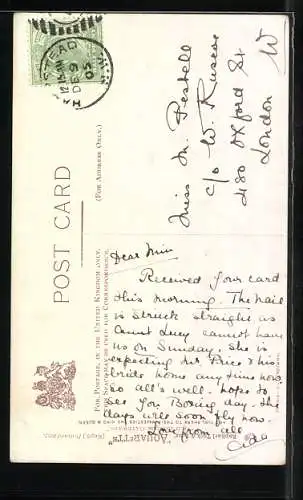 HAMPSTEAD N.W.
12.15 AM
DE 9
05
POST CARD
(FOR ADDRESS ONLY.)
FOR POSTAGE, IN THE UNITED KINGDOM ONLY,
THIS SPACE MAY BE USED FOR CORRESPONDENCE.
Miss M. Pestell
c/o W. Ruscoe
480 Oxford St
London
W
Dear Min
Received your card
this morning. The nail
is struck straight as
Aunt Lucy cannot have
us on Sunday. She is
expecting her Price & his
bride home any time now
so all's well. hope to
see you Boxing day. The
days will soon fly now.
Love from all